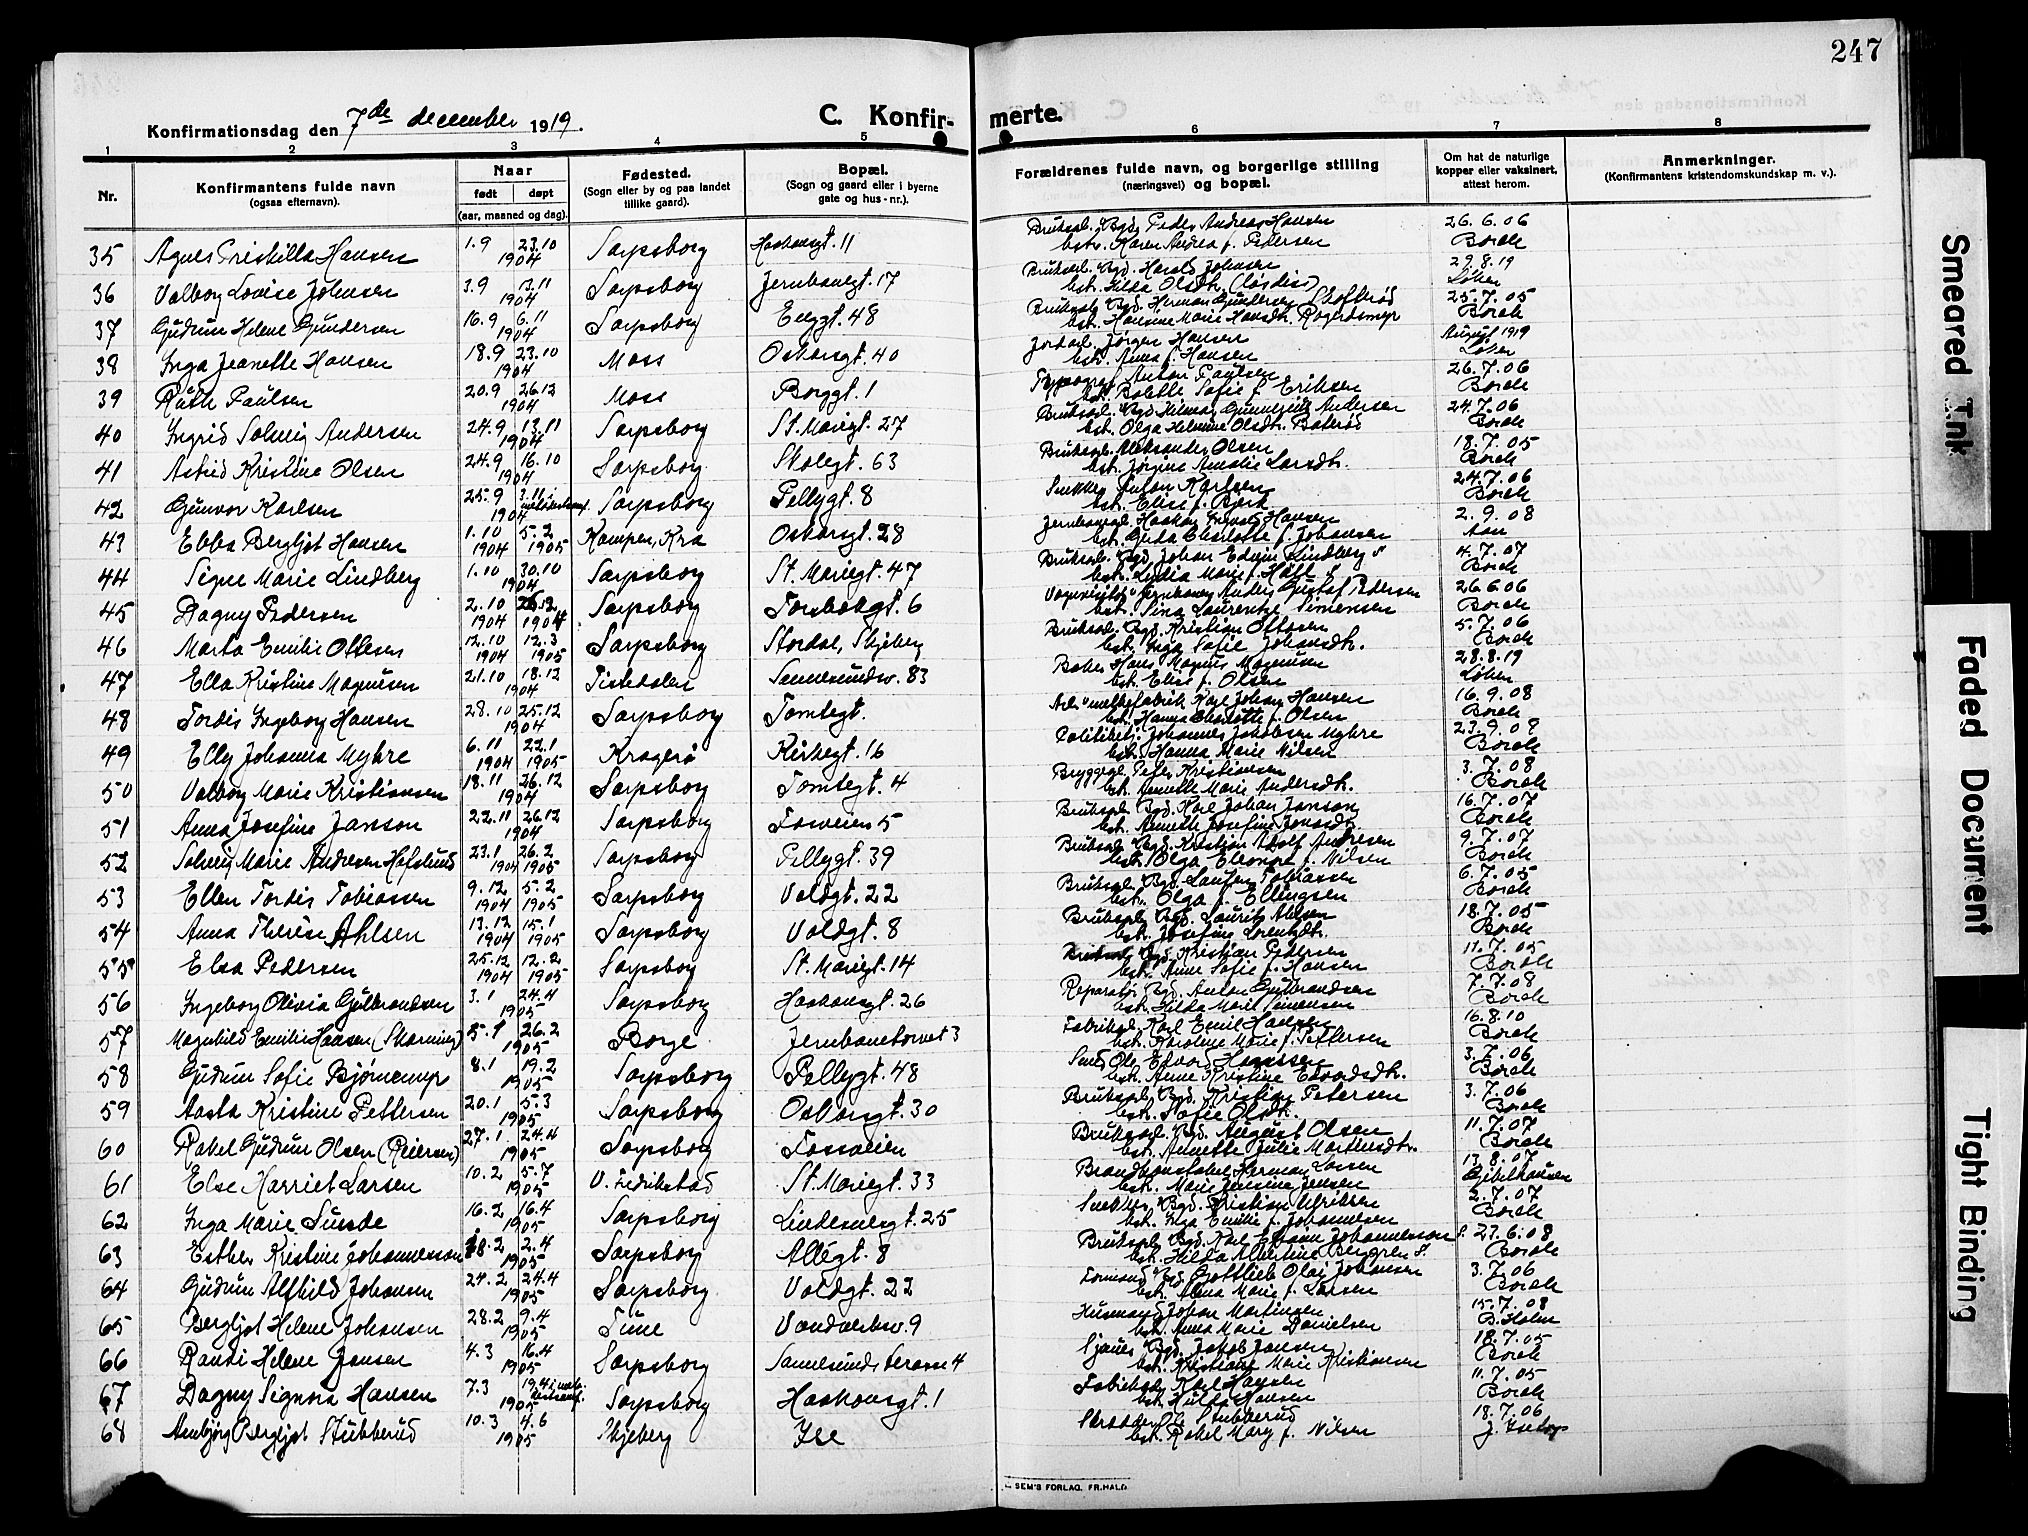 247
Konfirmationsdag den 7de december 1919.
C. Konfir- merte.
1 2 3 4 5 6 7 8
Nr.
Konfirmantens fulde navn
(ogsaa efternavn).
Naar
født døpt
(aar, maaned og dag).
Fødested.
(Sogn eller by og paa landet
tillike gaard).
Bopæl.
(Sogn og gaard eller i byerne
gate og hus-nr.).
Forældrenes fulde navn, og borgerlige stilling
(næringsvei) og bopæl.
Om hat de naturlige
kopper eller vaksinert,
attest herom.
Anmerkninger.
(Konfirmantens kristendomskundskap m. v.).
35 Agnes Priskilla Hansen 1.9 23.10 1904 Sarpsborg Haakonsgt. 11 Bruksarb. Bgd. Peder Andreas Hansen 26.6.06
hst. Karen Andrea f. Pedersen Borch
36 Valborg Lovise Johnsen 3.9 13.11 1904 Sarpsborg Jernbanegt. 17 Bruksarb. Bgd. Harald Johnsen 29.8.19
hst. Hilda Olsdtr. Løken
37 Gudrun Helene Gundersen 16.9 6.11 1904 Sarpsborg Enggt. 48 Bruksarb. Bgd. Herman Gundersen 25.7.05
hst. Hansine Marie Hansdtr. Borch
38 Inga Jeanette Hansen 18.9 23.10 1904 Moss Oskarsgt. 40 Jordarb. Jørgen Hansen August 1919
hst. Anna f. Hansen Løken
39 Ruth Paulsen 20.9 26.12 1904 Moss Borggt. 1 Typograf Anton Paulsen 26.7.06
hst. Bolette Sofie f. Eriksen Borch
40 Ingrid Solveig Andersen 24.9 13.11 1904 Sarpsborg St. Mariegt. 27 Bruksarb. Bgd. Hilmar Andersen 24.7.06
hst. Olga Helmine Olsdtr. Borch
41 Astrid Kristine Olsen 24.9 16.10 1904 Sarpsborg Skolegt. 63 Bruksarb. Aleksander Olsen 18.7.05
hst. Jørgine Amalie Larsdtr. Borch
42 Gunvor Karlsen 25.9 3.11 1904 Sarpsborg Pellygt. 8 Snekker Johan Karlsen 24.7.06
hst. Elise f. Borch
43 Ebba Bergljot Hansen 1.10 1904 5.2 1905 Kampen, Kra Oskarsgt. 28 Jernbanearb. Haakon Hansen 2.9.08
hst. Gerda Charlotte f. Johansen
44 Signe Marie Lindberg 1.10 30.10 1904 Sarpsborg St. Mariegt. 47 Bruksarb. Bgd. Johan Edvin Lindberg 4.7.07
hst. Lydia Marie f. Borch
45 Dagny Pedersen 2.10 1904 26.12 1904 Sarpsborg Torsbækgt. 6 Anders Gustaf Pedersen 26.6.06
hst. Sina Laurentze Simensen Borch
46 Marta Emilie Ottesen 12.10 1904 12.3 1905 Sarpsborg Stordal, Skjeberg Bruksarb. Bgd. Kristian Ottesen 5.7.06
hst. Inga Sofie Johansdtr. Borch
47 Ella Kristine Magnusen 21.10 18.12 1904 Tistedalen Sannesundsv. 83 Baker Hans Magnus Magnusen 28.8.19
hst. Elise f. Olsen Løken
48 Tordis Ingeborg Hansen 28.10 25.12 1904 Sarpsborg Tomtegt. Karl Johan Hansen 16.9.08
hst. Hanna Charlotte f. Olsen Borch
49 Elly Johanna Myhre 6.11 1904 22.1 1905 Kragerø Kirkegt. 16 Politibetj. Johannes Jakobsen Myhre 23.9.08
hst. Hanna Marie Nilsen Borch
50 Valborg Marie Kristiansen 18.11 26.12 1904 Sarpsborg Tomtegt. 4 Bryggearb. Peter Kristiansen 3.7.08
hst. Annette Marie Andersdtr. Borch
51 Anna Josefine Janson 22.11 26.12 1904 Sarpsborg Fosveien 5 Bruksarb. Bgd. Karl Johan Janson 16.7.07
hst. Annette Josefine Jonasdtr. Borch
52 Solveig Marie Andresen Hafslund 23.1 1904 26.2 1905 Sarpsborg Pellygt. 39 Bruksarb. Bgd. Kristian Adolf Andresen 9.7.07
hst. Olga Eleonore f. Nilsen Borch
53 Ellen Tordis Tobiassen 9.12 1904 5.2 1905 Sarpsborg Voldgt. 22 Bruksarb. Bgd. Lauritz Tobiassen 6.7.05
hst. Olga f. Ellingsen Borch
54 Anna Therese Ahlsen 13.12 1904 15.1 1905 Sarpsborg Voldgt. 8 Bruksarb. Bgd. Laurits Ahlsen 18.7.05
hst. Josefine Lorentzdtr. Borch
55 Elsa Pedersen 25.12 1904 12.2 1905 Sarpsborg St. Mariegt. 14 Bruksarb. Bgd. Kristian Pedersen 11.7.05
hst. Anne Sofie f. Hansen Borch
56 Ingeborg Olivia Gulbrandsen 3.1 24.4 1905 Sarpsborg Haakonsgt. 26 Reparatør Bgd. Anton Gulbrandsen 7.7.08
hst. Hilda Marie Simensen Borch
57 Magnhild Emilie Hansen (Skarning) 5.1 26.2 1905 Borge Jernbanetorvet 3 Fabrikarb. Karl Emil Hansen 16.8.10
hst. Karoline Marie f. Pettersen Borch
58 Gudrun Sofie Bjørnemyr 8.1 19.2 1905 Sarpsborg Pellygt. 48 Smed Ole Edvard Hansen 3.7.06
hst. Anne Kristine Edvardsdtr. Borch
59 Aasta Kristine Pettersen 20.1 5.3 1905 Sarpsborg Oskarsgt. 30 Bruksarb. Bgd. Kristian Petersen 3.7.06
hst. Sofie Olsdtr. Borch
60 Rakel Gudrun Olsen (Reiersen) 27.1 24.4 1905 Sarpsborg Fossveien Bruksarb. Bgd. August Olsen 11.7.07
hst. Annette Julie Martinsdtr. Borch
61 Else Harriet Larsen 10.2 5.7 1905 V. Fredrikstad St. Mariegt. 33 Brandkonstabel Herman Larsen 13.8.07
hst. Marie Jensine Jensen Gibelhausen
62 Inga Marie Sunde 16.2 16.4 1905 Sarpsborg Lindesnesgt. 25 Snekker Bgd. Kristian Ulriksen 2.7.07
hst. Inga Emilie f. Johannesen Borch
63 Esther Kristine Johannesson 18.2 2.4 1905 Sarpsborg Allégt. 8 Bruksarb. Bgd. Karl Johannesson 27.6.08
hst. Hilda Albertine Berggren Borch
64 Gudrun Alfhild Johansen 24.2 24.4 1905 Sarpsborg Voldgt. 22 Formand Bgd. Gottlieb Olai Johansen 3.7.06
hst. Anna Marie f. Larsen Borch
65 Bergljot Helene Johansen 28.2 9.4 1905 Tune Vandverksv. 9 Husmand Johan Martinsen 15.7.08
hst. Anna Marie Danielsen B. Holm
66 Randi Helene Jansen 4.3 16.4 1905 Sarpsborg Sannesunds terasse 4 Sjauer Bgd. Jakob Jansen 18.7.05
hst. Kristiane Marie Kristiansen Borch
67 Dagny Signora Hansen 7.3 19.4 1905 Sarpsborg Haakonsgt. 1 Fabrikarb. Karl Hansen 11.7.05
hst. Hulda Hansen Borch
68 Annbjørg Bergljot Stubberud 10.3 4.6 1905 Skjeberg Ise Skrædder Ole Stubberud 18.7.06
hst. Rakel Mary f. Nilsen
SEM'S FORLAG, FR.HALD
Smeared Ink
Faded Document
Tight Binding